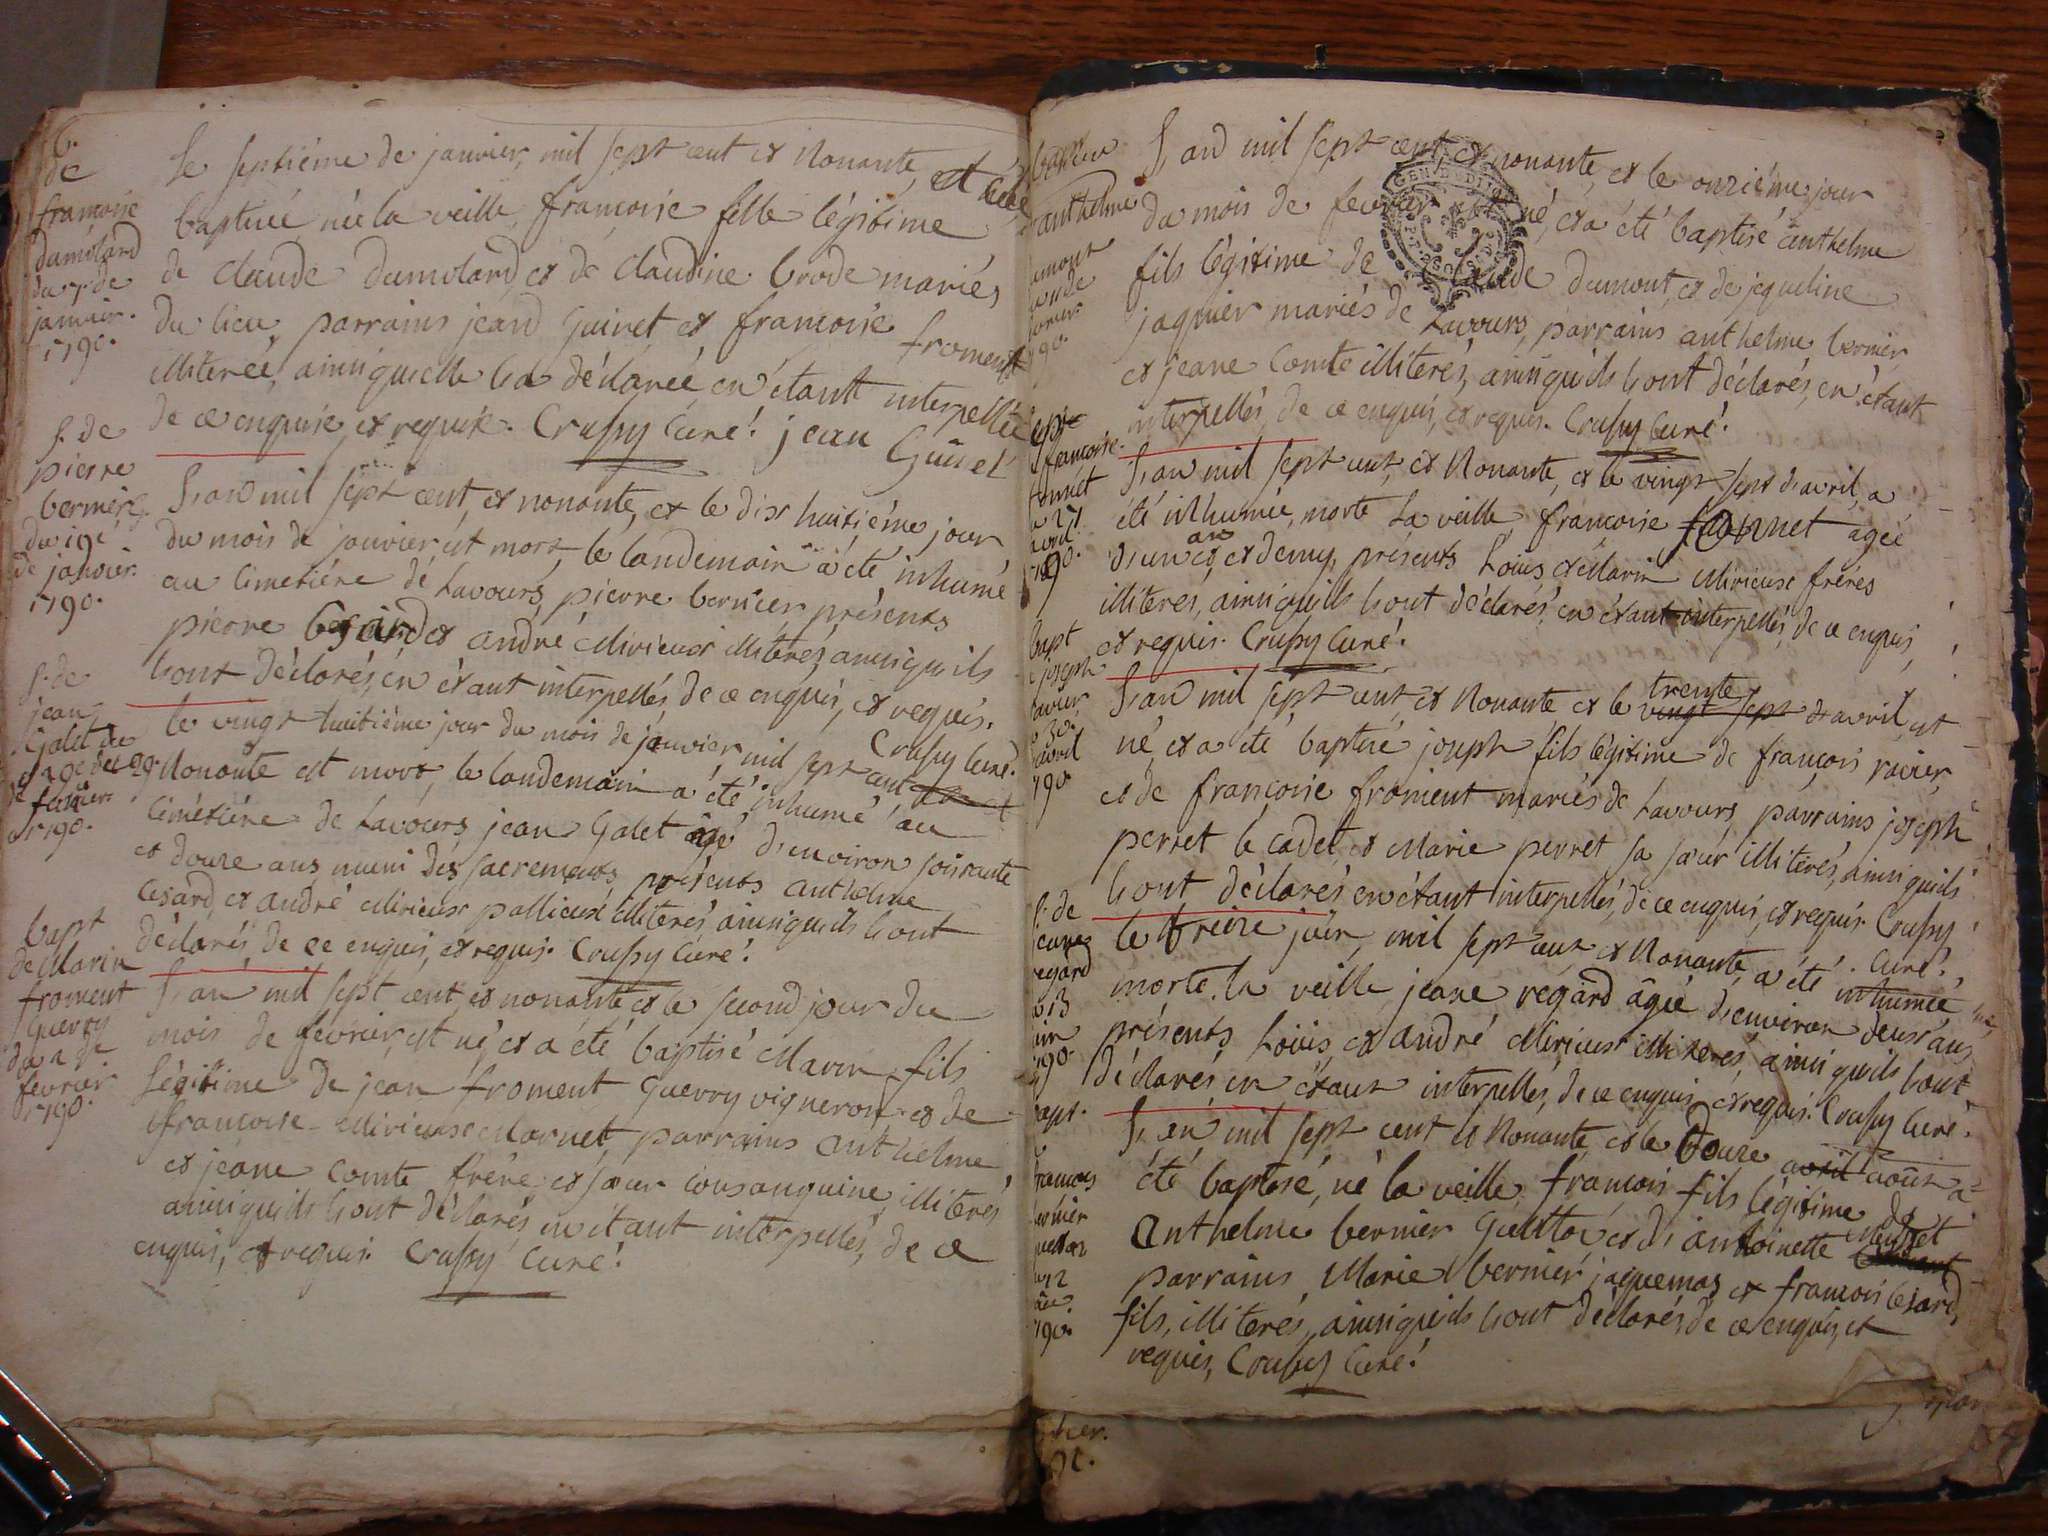 b.
de
francoise
dumolard
du 7 de
janvier.
1790.
Le septiéme de janvier, mil sept cent et Nonante, est
baptisée née la veille, francoise fille légitime
de Claude dumolard, et de Claudine brode mariés
du lieu, parrains jean guinet et francoise froment
illiterée, ainsi qu'elle l'a déclarée, en étant interpellée
de ce enquise, et requise. Crussy Curé! jean Guinet
s. de
pierre
bernier,
du 19e
de janvier.
1790.
L'an mil sept cent, et nonante, et le dix huitiéme jour
du mois de janvier est mort, le landemain a été inhumé
au Cimetiére de Lavours, pierre bernier, présents
pierre besard et andré Mirieux illiterés, ainsi qu'ils
l'ont déclarés, en étant interpellés, de ce enquis, et requis.
Crussy Curé.
s. de
jean
Galet
de
1790.
le vingt huitiéme jour du mois de janvier, mil sept cent
Nonante est mort, le landemain a été inhumé au
Cimétiére de Lavours, jean Galet âgé d'environ soissante
et douze ans muni des sacrements, présents anthelme
besard, et andré Mirieux pallieux illiterés, ainsi qu'ils l'ont
déclarés, de ce enquis, et requis. Crussy Curé!
bapt
de Marin
froment
Guerry
du 2 de
fevrier
1790.
L'an mil sept cent, et nonante et le second jour du
mois de fevrier, est né, et a été baptisé Marin, fils
légitime de jean froment Guerry vigneron, et de
francoise Mirieuse Mornet, parrains anthelme
et jeane Comte frère et sœur consanguine, illiterés
ainsi qu'ils l'ont déclarés, en étant interpellés, de ce
enquis, et requis. Crussy Curé!
anthelme
L'an mil sept cent, et nonante, et le onziéme jour
du mois de fevrier né, et a été baptisé anthelme
fils légitime de Claude dumont, et de jequeline
jaquier mariés de Lavours, parrains anthelme bernier,
et jeane Comte illiterés, ainsi qu'ils l'ont déclarés, en étant
interpellés, de ce enquis, et requis. Crussy Curé!
francoise
L'an mil sept cent, et Nonante, et le vingt sept d'avril, a
été inhumée, morte la veille, francoise fournet âgée
d'un an et demy, présents Louis et Marin Mirieux frères
illiteres, ainsi qu'ils l'ont déclarés, en étant interpellés, de ce enquis,
et requis. Crussy Curé!
bapt
joseph
L'an mil sept cent, et Nonante et le trente
vingt sept d'avril, est
né, et a été baptisé joseph fils légitime de francois ravier,
et de francoise froment mariés de Lavours, parrains joseph
perret le cadet, et Marie perret sa sœur illiterés, ainsi qu'ils
l'ont déclarés, en étant interpellés, de ce enquis, et requis. Crussy
Curé!
s. de
jeane
regard
le treize juin, mil sept cent et Nonante, a été inhumée
morte la veille, jeane régard âgée d'environ deux ans
présents Louis et andré Mirieux illiterés, ainsi qu'ils l'ont
déclarés, en étant interpellés, de ce enquis, et requis. Crussy Curé.
bapt.
francois
L'an mil sept cent et Nonante, et le douze avril aoûst a
été baptisé, né la veille, francois fils légitime de
anthelme bernier Guetta, et d'antoinette
parrains, Marie bernier jaquemas et francois besard,
fils, illiterés, ainsi qu'ils l'ont déclarés, de ce enquis, et
requis, Crussy Curé!